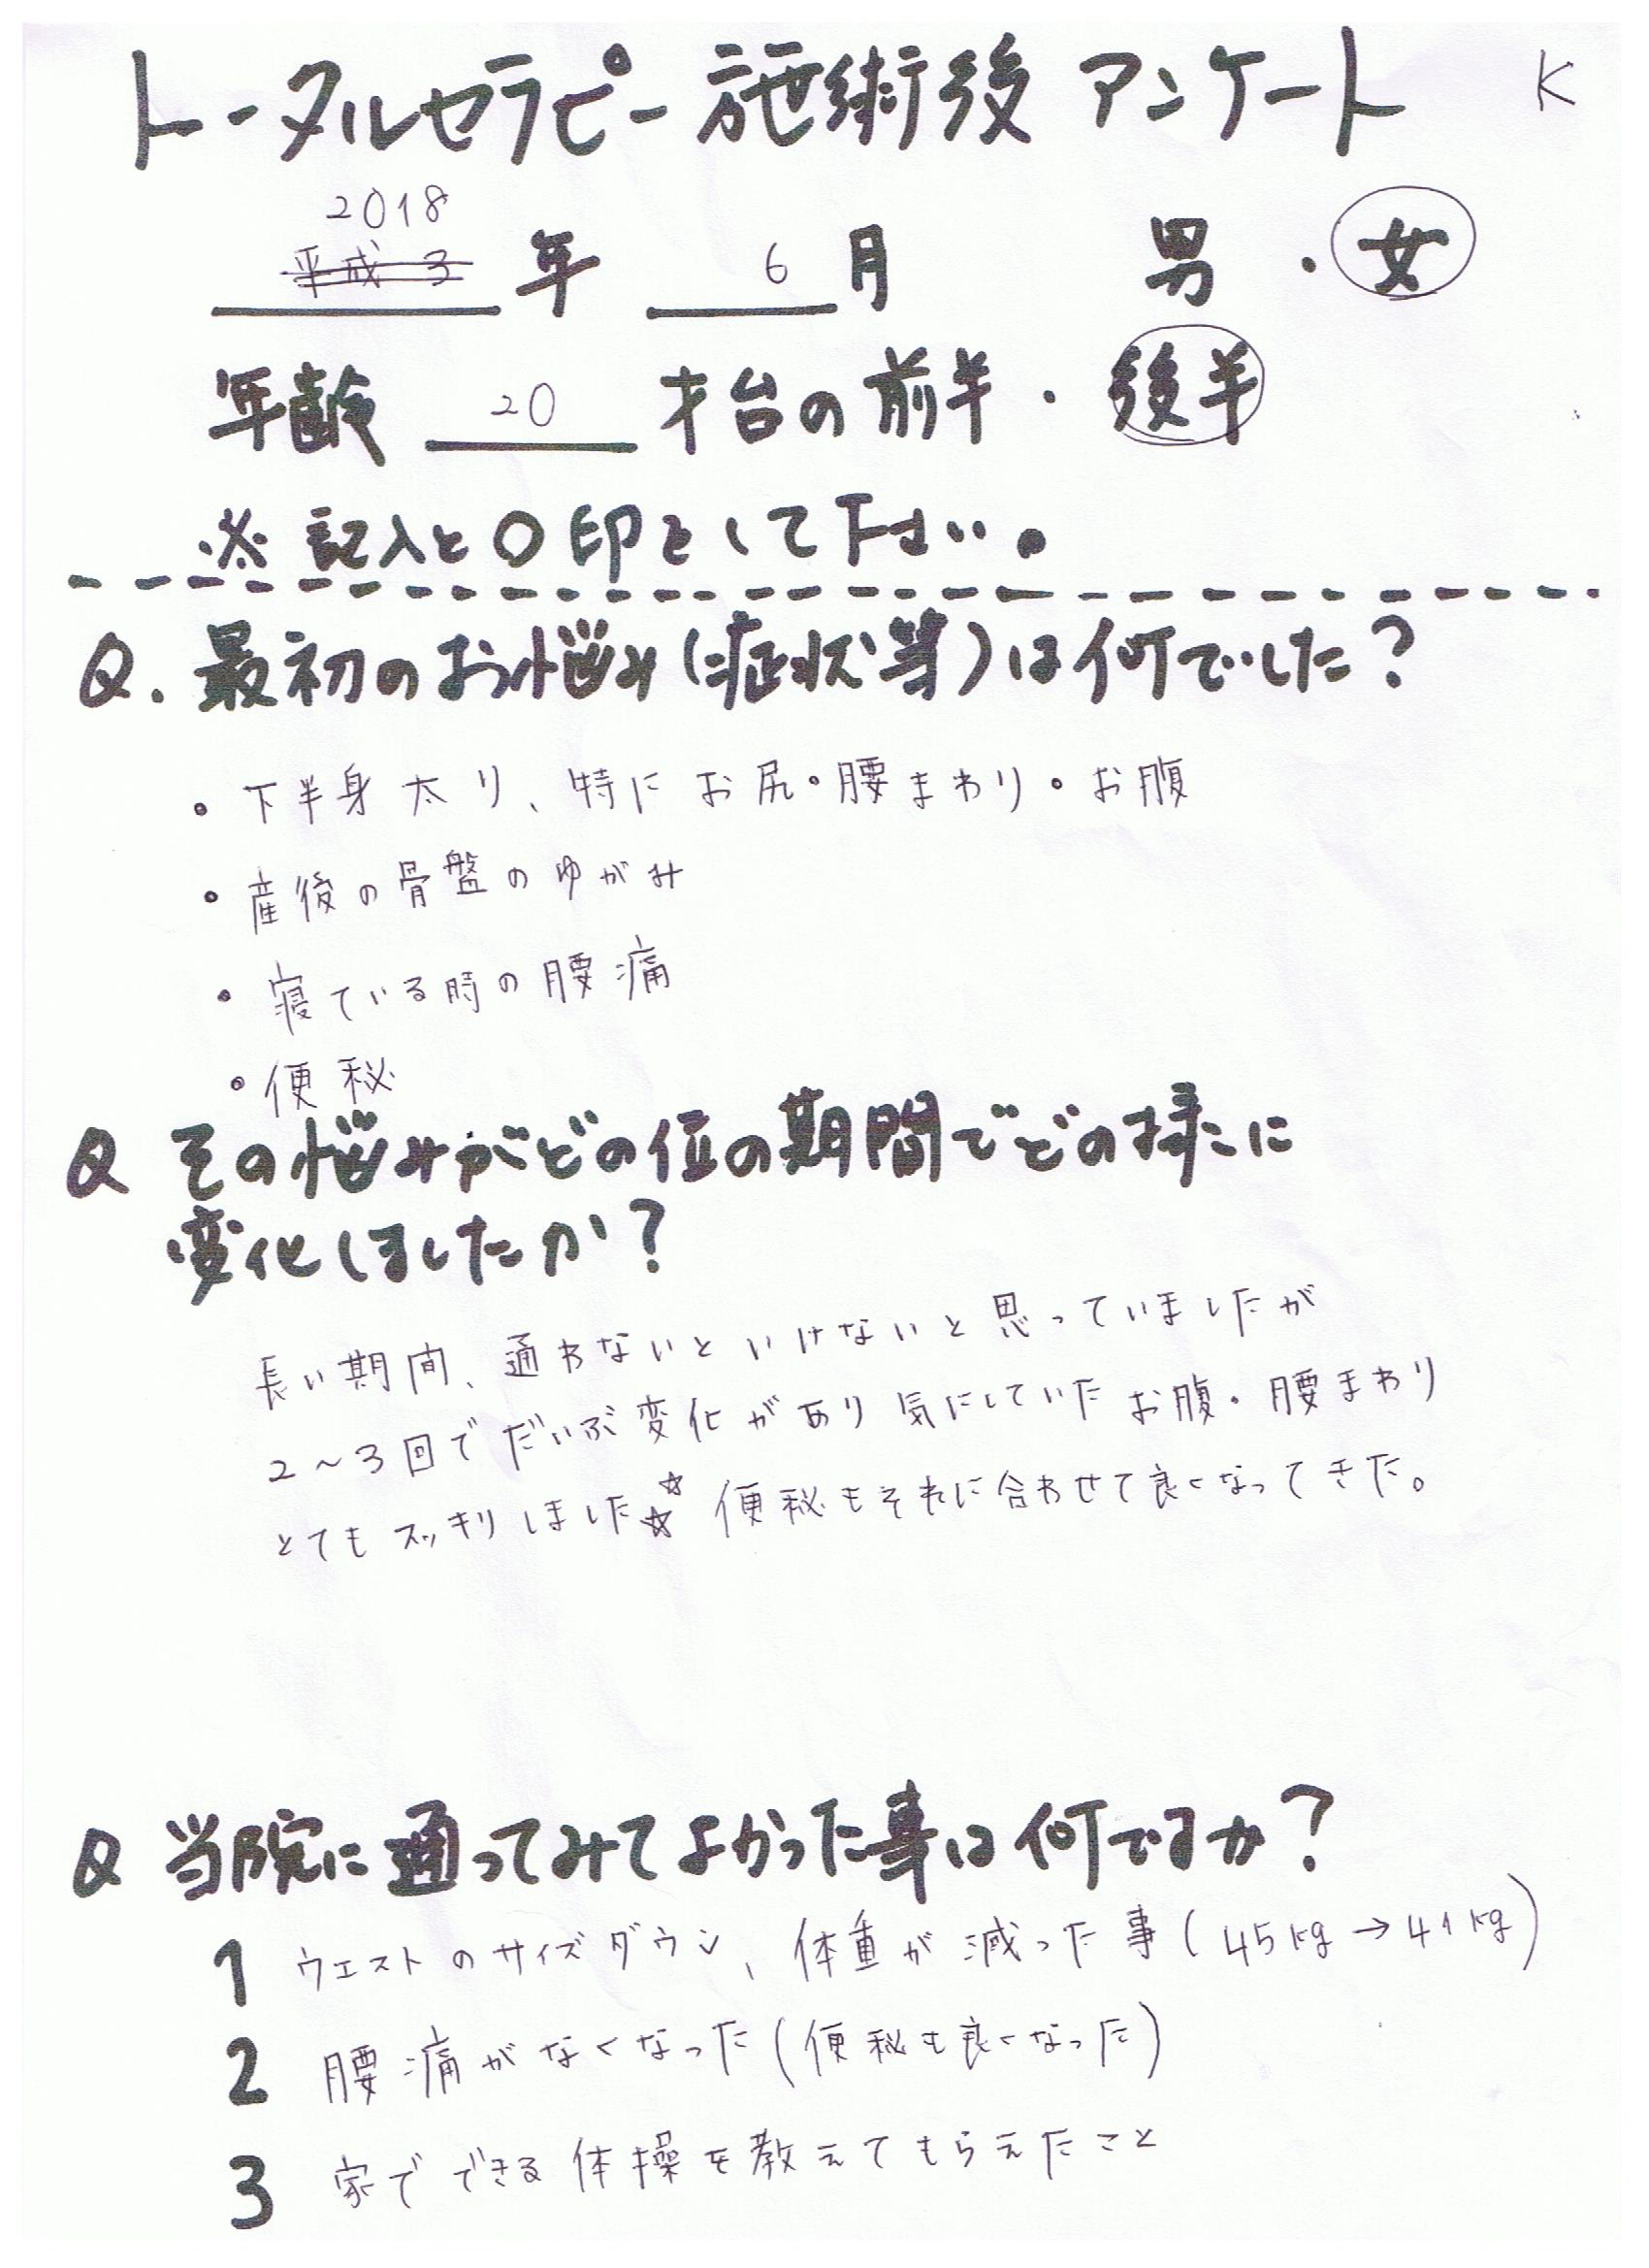 トータルセラピー施術後 アンケート K
2018
平成 3 年 6 月 男 ・ 女
年齢 20 才台の前半 ・ 後半
※ 記入と○印をして下さい。
Q. 最初のお悩み(症状等)は何でした?
・下半身太り、特にお尻・腰まわり・お腹
・産後の骨盤のゆがみ
・寝ている時の腰痛
・便秘
Q その悩みがどの位の期間でどの様に
変化しましたか?
長い期間、通わないといけないと思っていましたが
2〜3回でだいぶ変化があり気にしていたお腹・腰まわり
とてもスッキリしました☆☆ 便秘もそれに合わせて良くなってきた。
Q 当院に通ってみてよかった事は何ですか?
1 ウエストのサイズダウン、体重が減った事(45kg→41kg)
2 腰痛がなくなった(便秘も良くなった)
3 家でできる体操を教えてもらえたこと